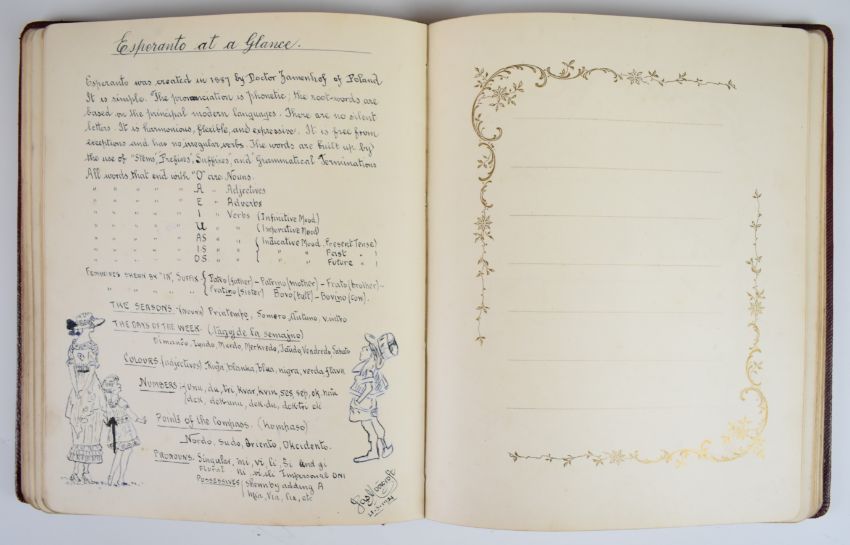 Esperanto at a Glance.
Esperanto was created in 1887 by Doctor Zamenhof of Poland
It is simple. The pronunciation is phonetic; the root-words are
based on the principal modern languages. There are no silent
letters. It is harmonious, flexible, and expressive. It is free from
exceptions and has no irregular verbs. The words are built up by
the use of "Stems", Prefixes", Suffixes", and "Grammatical Terminations
All words that end with "O" are Nouns.
" " " " " A " Adjectives
" " " " " E " Adverbs
" " " " " I " Verbs (Infinitive Mood)
" " " " " U " " (Imperative Mood)
" " " " " AS " " (Indicative Mood. Present Tense)
" " " " " IS " " ( " " Past " )
" " " " " OS " " ( " " Future " )
FEMININES SHEWN BY "IN", SUFFIX { Patro (father) - Patrino (mother) - Frato (brother) -
" " " " { Fratino (sister) Bovo (bull) - Bovino (cow).
THE SEASONS - (nouns) Printempo, Somero, Autuno, vintro
THE DAYS OF THE WEEK. (Tagoj de la semajno)
Dimanĉo, Lundo, Mardo, Merkredo, Ĵaŭdo, Vendredo, Sabato
COLOURS (adjectives) Ruĝa, blanka, blua, nigra, verda, flava
NUMBERS :- Unu, du, tri, kvar, kvin, ses, sep, ok, naŭ
(dek, dek-unu, dek-du, dek-tri etc
Points of the Compass. (Kompaso)
Nordo, Sudo, Oriento, Okcidento.
PRONOUNS. Singular, mi, vi, li, ŝi and ĝi
PLURAL ni, vi, ili Impersonal ONI
POSSESSIVES shewn by adding A
Mia, Via, Lia, etc